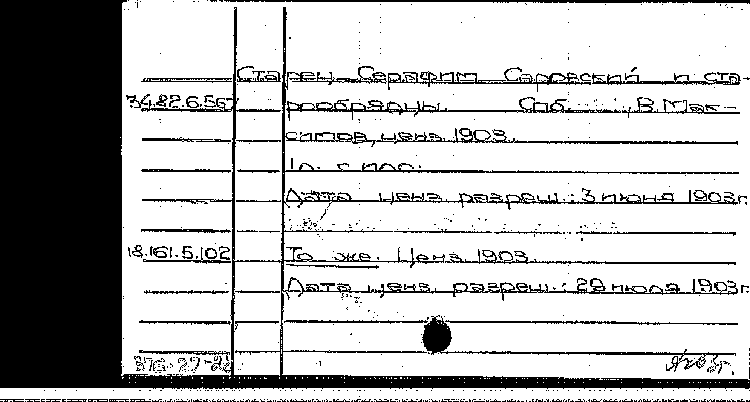 Старец Серафим Саровский и ста-
34.82.6.567 рообрядцы. Спб., В. Мак-
симов, ценз. 1903.
1 л. с илл.
Дата ценз. разреш.: 3 июня 1903г.
18.161.5.102 То же. Ценз. 1903.
Дата ценз. разреш.: 29 июля 1903г.